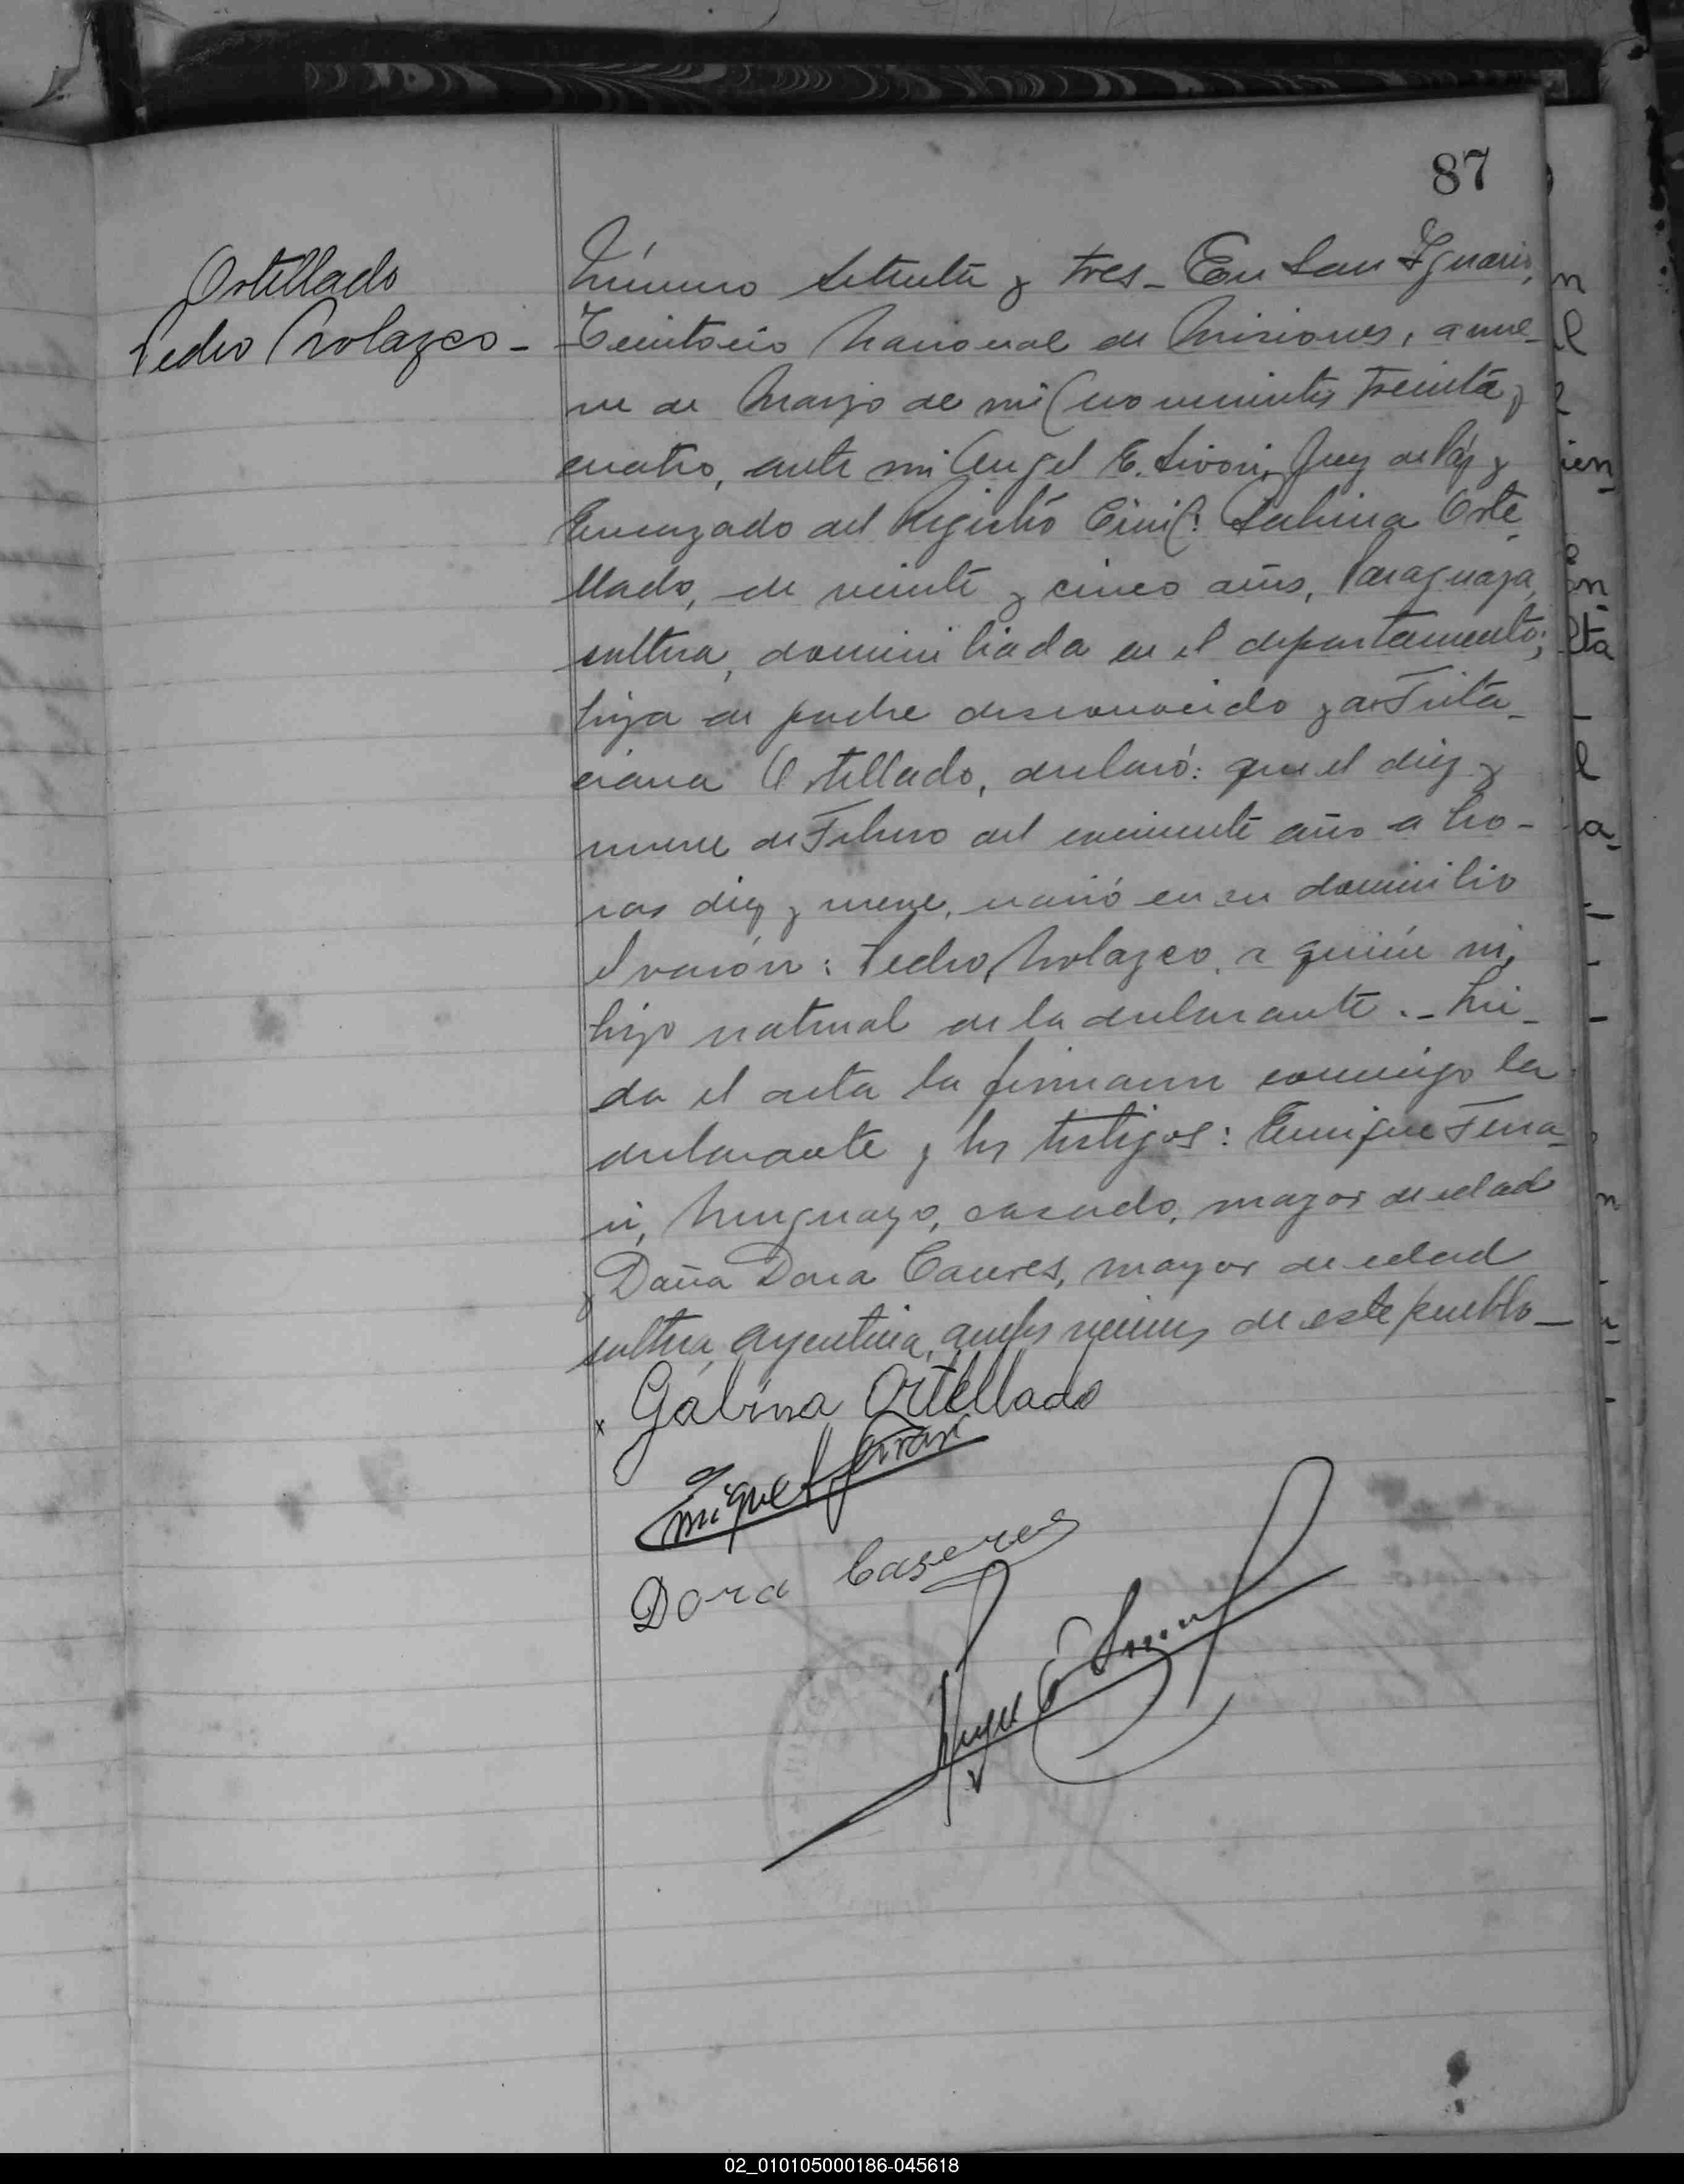 87
Ortellado
Pedro Nolazco -
Número setenta y tres - En San Ignacio,
Territorio Nacional de Misiones, a nue-
ve de Marzo de mil novecientos treinta y
cuatro, ante mi Angel E. Sivori, Juez de Páz y
Encargado del Registro Civil: Sabina Orte-
llado, de veinte y cinco años, Paraguaya,
soltera, domiciliada en el departamento;
hija de padre desconocido y de
Ortellado, declaró: que el diez y
nueve de Febrero del corriente año a ho-
ras diez y nueve, nació en su domicilio
el varón: Pedro Nolazco, a quién vi,
hijo natural de la declarante. - Leí-
da el acta la firmaron conmigo la
declarante y los testigos: Enrique Ferra-
ri, Uruguayo, casado, mayor de edad
y Doña Dora Caceres, mayor de edad
soltera, argentina, ambos vecinos de este pueblo -
x Gabina Ortellado
Dora Caseres
Angel E Sivori
02_010105000186-045618